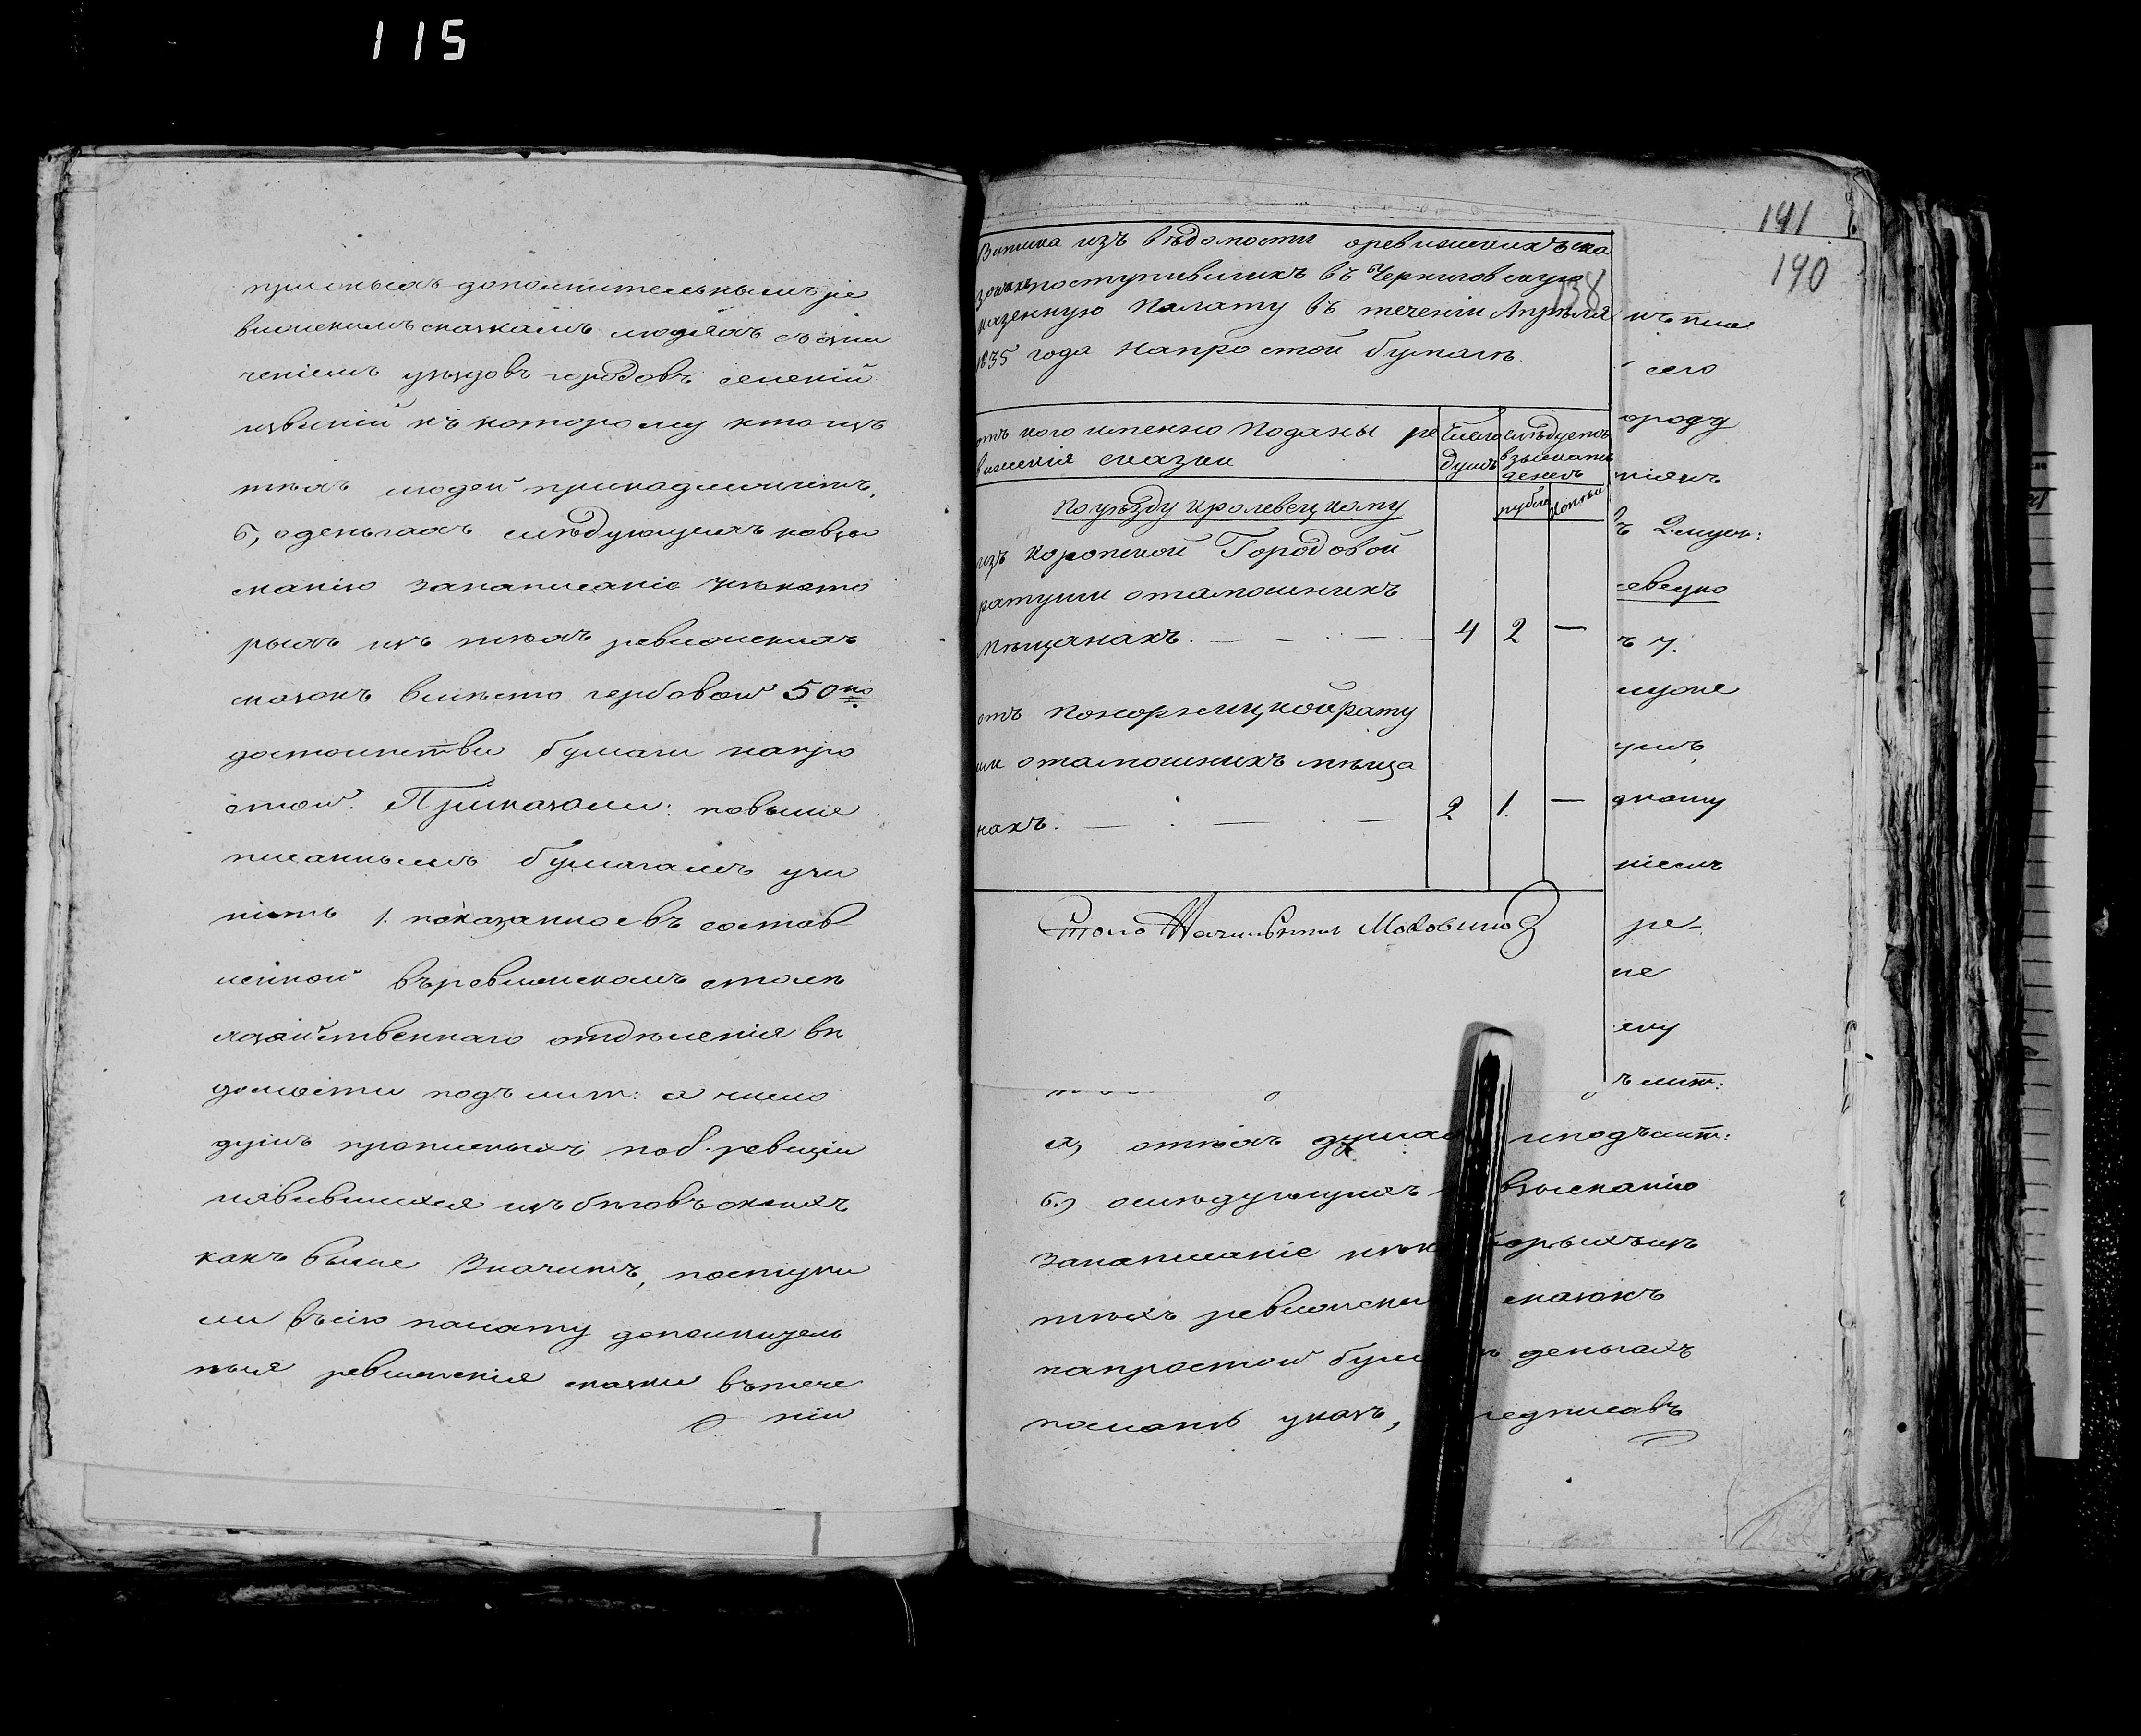 115
присныхъ дополнительнымъ ре
визскимъ сказкамъ людяхъ съ озна
ченіемъ уѣздовъ городовъ селеній
и къ которому кто изъ
тѣхъ людей принадлежитъ,
б, о деньгахъ слѣдующихъ ко взы
сканію за написаніе нѣкото
рыхъ изъ тѣхъ ревизскихъ
сказокъ вмѣсто гербовой 50 ко
достоинства бумаги на про
стой. Приказали: по выше
писаннымъ бумагамъ учи
нить 1. показанное въ состав
ленной въ ревизскомъ столѣ
хозяйственнаго отдѣленія вѣ
домости подъ лит: а число
душъ прописныхъ по 8. ревизіи
и явившихся изъ бѣговъ о коихъ
какъ выше значитъ, поступи
ли въ сію палату дополнитель
ныя ревизскія сказки въ тече
ніи
141
140
138
Выписка изъ вѣдомости о ревизскихъ ска
зкахъ поступившихъ въ Черниговскую
казенную Палату въ теченіи Апрѣля
1835 года на простой бумагѣ.
отъ кого именно поданы ре
визскія сказки
Число душъ
слѣдуетъ взыскать денегъ
рубли копѣйки
По уѣзду Кролевецкому
изъ Коропской Городовой
ратуши о тамошнихъ
мѣщанахъ. — — — 4 2 —
отъ Понорницкой рату
ши о тамошнихъ мѣща
нахъ. — — — 2 1. —
Столо Начальникъ
сего
ороду
ніяхъ
севецко
ъ 7.
ніемъ
ре-
не
ъ лит:
а, о тѣхъ душахъ и подъ лит:
б.) о слѣдующихъ взысканію
за написаніе нѣкоторыхъ изъ
тѣхъ ревизскихъ сказокъ
на простой бумагѣ деньгахъ
послать указъ, предписавъ